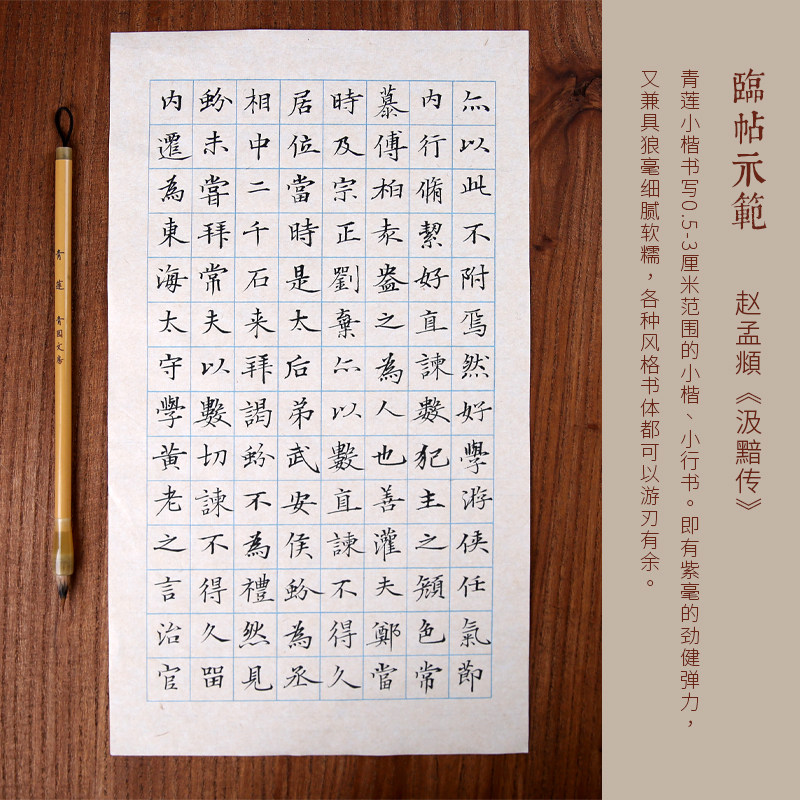 臨帖示範
赵孟頫《汲黯传》
青莲小楷书写0.5-3厘米范围的小楷、小行书。即有紫毫的劲健弹力，
又兼具狼毫细腻软糯，各种风格书体都可以游刃有余。
亦以此不附焉然好學游俠任氣節
内行脩絜好直諫數犯主之顏色常
慕傅柏袁盎之為人也善灌夫鄭當
時及宗正劉棄亦以數直諫不得久
居位當時是太后弟武安侯蚡為丞
相中二千石来拜謁蚡不為禮然見
蚡未嘗拜常夫以數切諫不得久留
内遷為東海太守學黃老之言治官
青蓮